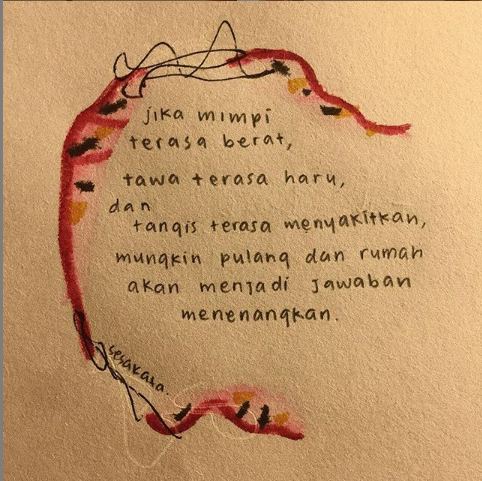 jika mimpi
terasa berat,
tawa terasa haru,
dan
tangis terasa menyakitkan,
mungkin pulang dan rumah
akan menjadi jawaban
menenangkan.
sesakata.